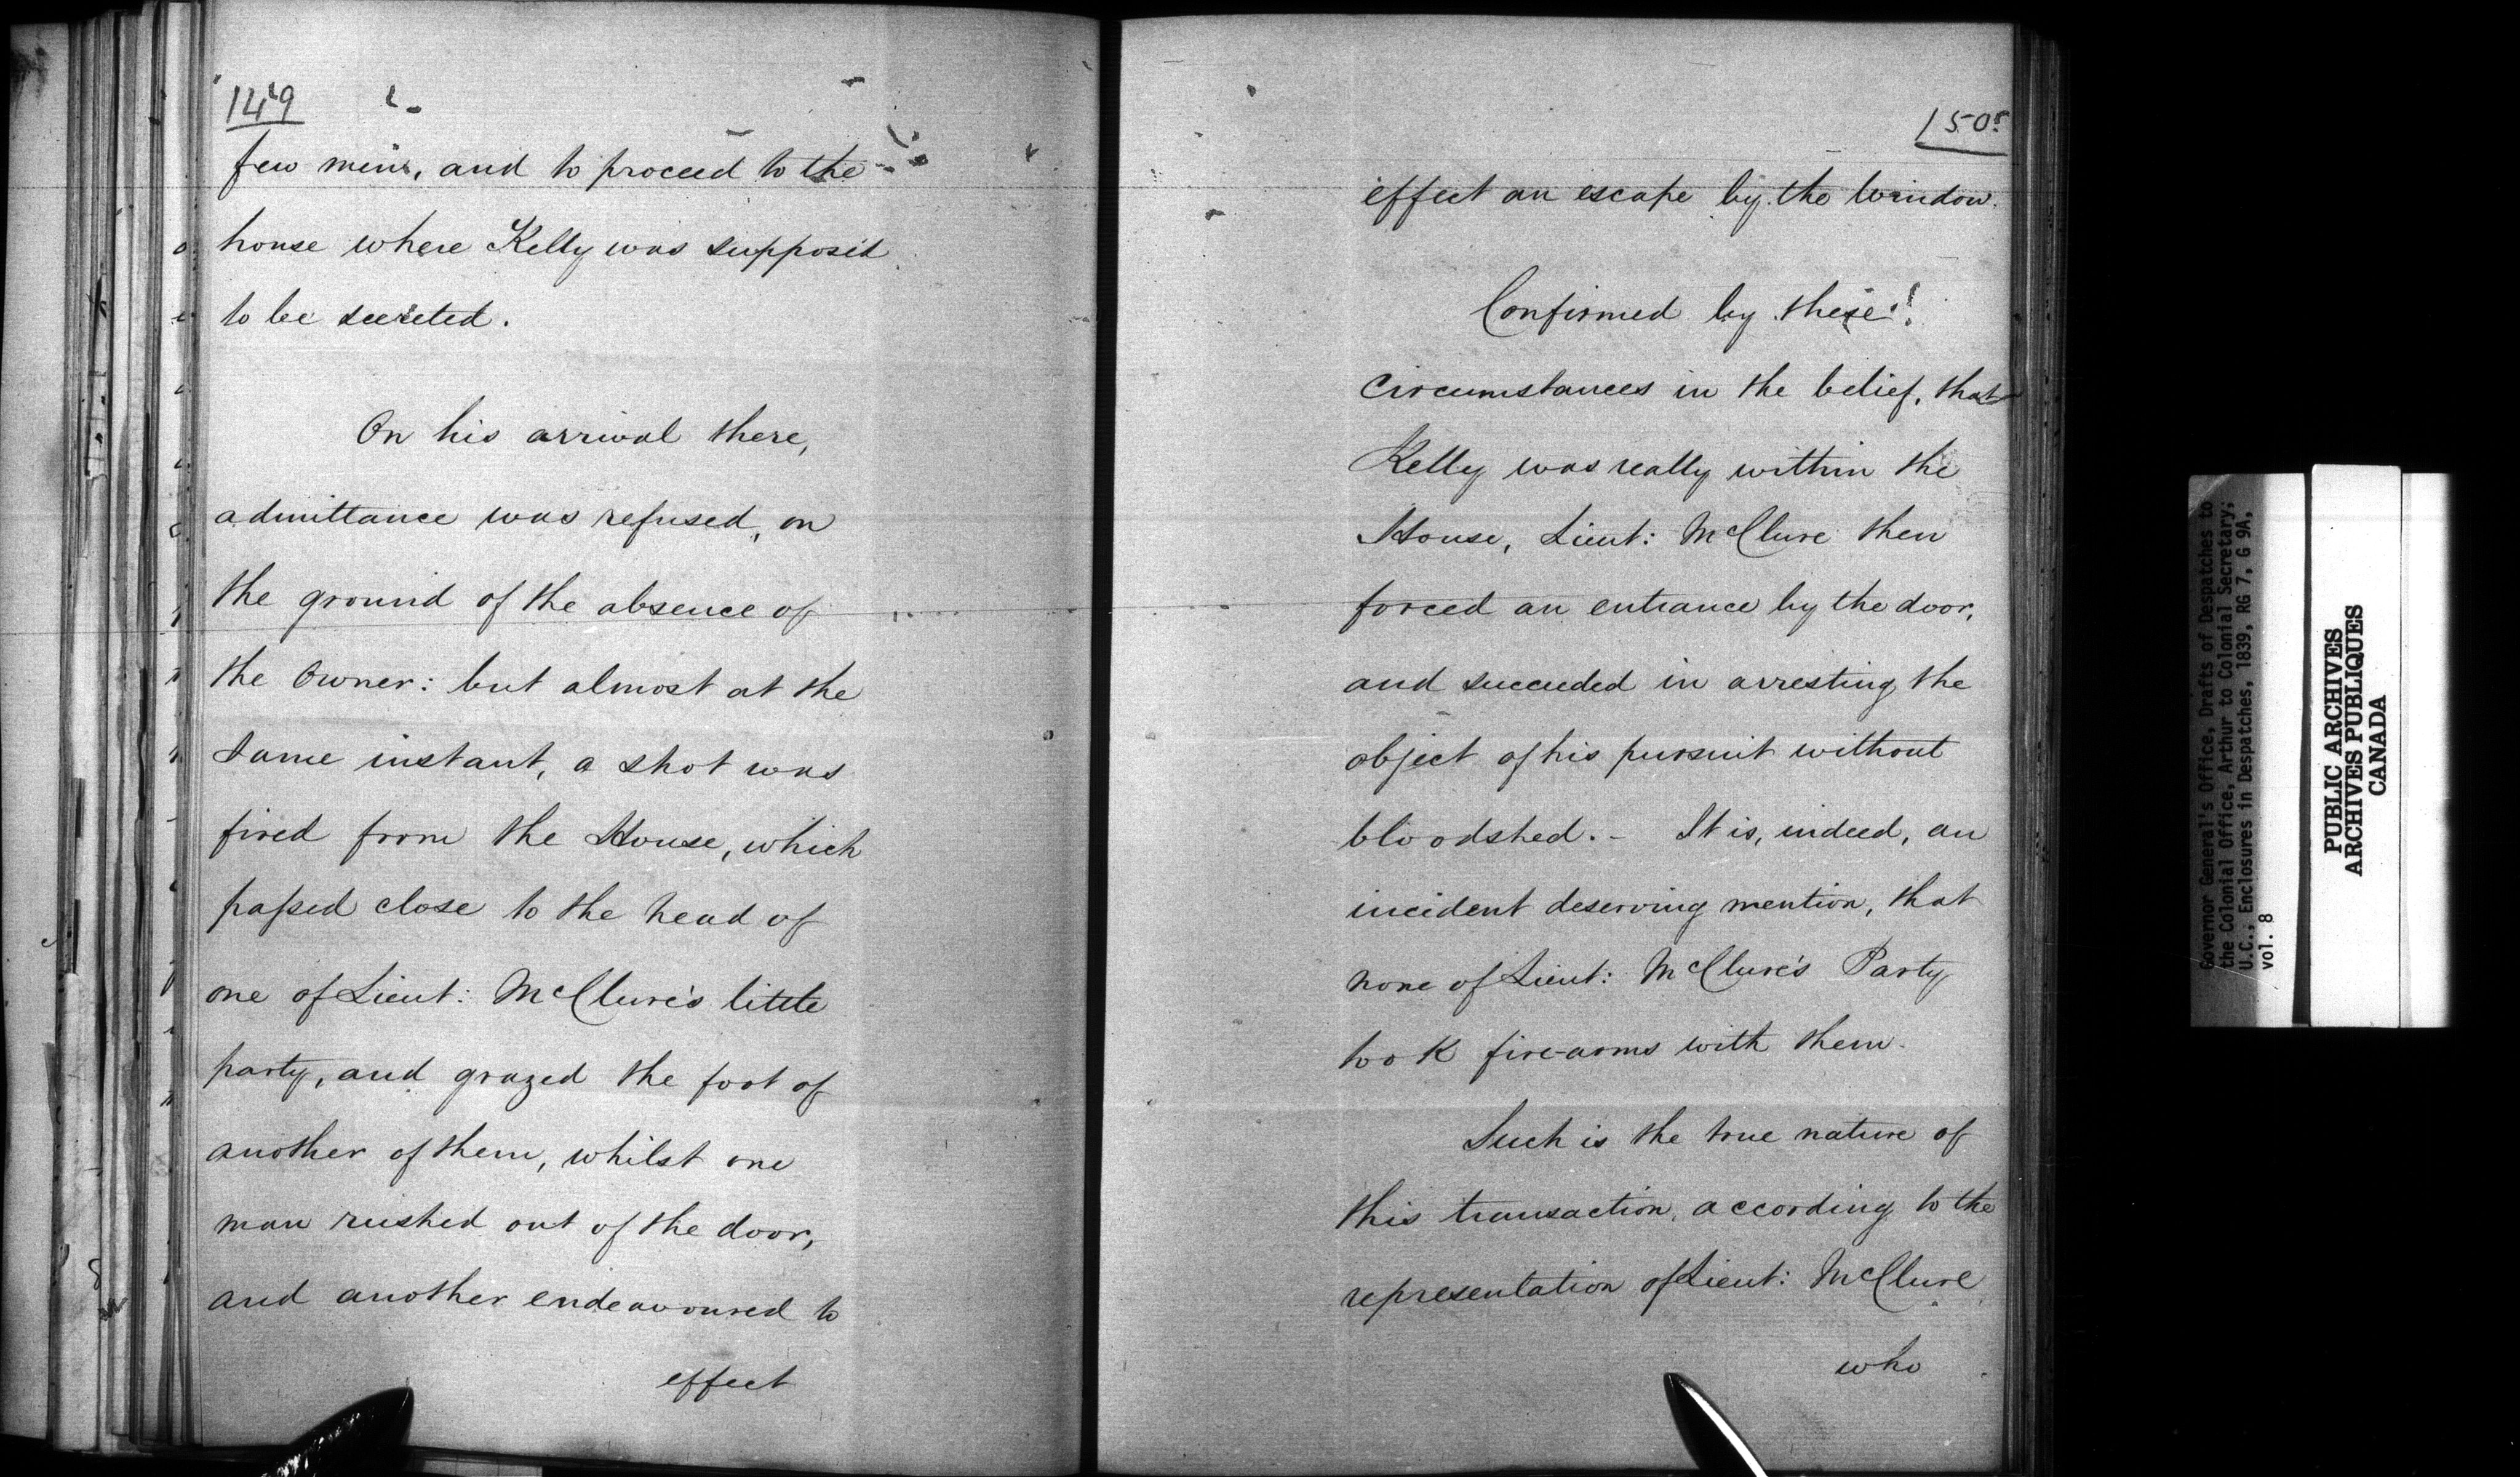 149
few men, and to proceed to the
house where Kelly was supposed
to be secreted.
On his arrival there,
admittance was refused, on
the ground of the absence of
the Owner: but almost at the
same instant, a shot was
fired from the House, which
passed close to the head of
one of Lieut: McClure's little
party, and grazed the foot of
another of them, whilst one
man rushed out of the door,
and another endeavoured to
effect
150
effect an escape by the Window.
Confirmed by these
Circumstances in the belief, that
Kelly was really within the
House, Lieut: McClure then
forced an entrance by the door,
and succeeded in arresting the
object of his pursuit without
bloodshed. - It is, indeed, an
incident deserving mention, that
none of Lieut: McClure's Party
took fire-arms with them.
Such is the true nature of
this transaction, according to the
representation of Lieut: McClure
who
Governor General's Office, Drafts of Despatches to
the Colonial Office, Arthur to Colonial Secretary;
U.C., Enclosures in Despatches, 1839, RG 7, G 9A,
vol. 8
PUBLIC ARCHIVES
ARCHIVES PUBLIQUES
CANADA